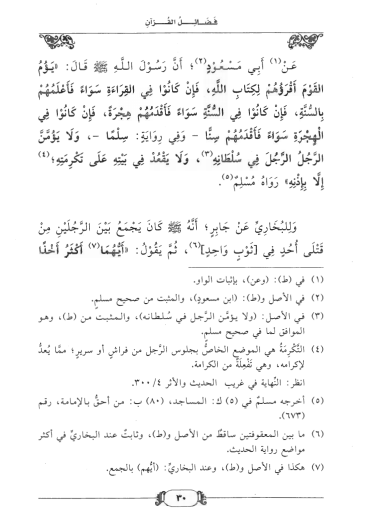 فَضَائِلُ القُرْآنِ
عَنْ(١) أَبِي مَسْعُودٍ(٢)؛ أَنَّ رَسُولَ اللَّهِ ﷺ قَالَ: «يَؤُمُّ
القَوْمَ أَقْرَؤُهُمْ لِكِتَابِ اللَّهِ، فَإِنْ كَانُوا فِي القِرَاءَةِ سَوَاءً فَأَعْلَمُهُمْ
بِالسُّنَّةِ، فَإِنْ كَانُوا فِي السُّنَّةِ سَوَاءً فَأَقْدَمُهُمْ هِجْرَةً، فَإِنْ كَانُوا فِي
الْهِجْرَةِ سَوَاءً فَأَقْدَمُهُمْ سِنًّا - وَفِي رِوَايَةٍ: سِلْمًا -، وَلَا يَؤُمَّنَّ
الرَّجُلُ الرَّجُلَ فِي سُلْطَانِهِ(٣)، وَلَا يَقْعُدْ فِي بَيْتِهِ عَلَى تَكْرِمَتِهِ؛(٤)
إِلَّا بِإِذْنِهِ» رَوَاهُ مُسْلِمٌ(٥).
وَلِلبُخَارِيِّ عَنْ جَابِرٍ؛ أَنَّهُ ﷺ كَانَ يَجْمَعُ بَيْنَ الرَّجُلَيْنِ مِنْ
قَتْلَى أُحُدٍ فِي [ثَوْبٍ وَاحِدٍ](٦)، ثُمَّ يَقُولُ: «أَيُّهُمَا(٧) أَكْثَرُ أَخْذًا
(١) في (ط): (وعن)، بإثبات الواو.
(٢) في الأصل و(ط): (ابن مسعود)، والمثبت من صحيح مسلم.
(٣) في الأصل: (ولا يؤمّن الرجل في سلطانه)، والمثبت من (ط)، وهو
الموافق لما في صحيح مسلم.
(٤) التَّكْرِمَةُ هي الموضع الخاصُّ بجلوس الرَّجل من فراشٍ أو سريرٍ؛ ممَّا يُعدُّ
لإكرامه، وهي تَفْعِلَةٌ من الكرامة.
انظر: النّهاية في غريب الحديث والأثر ٣٠٠/٤.
(٥) أخرجه مسلمٌ في (٥) ك: المساجد، (٨٠) ب: من أحقُّ بالإمامة، رقم
(٦٧٣).
(٦) ما بين المعقوفتين ساقطٌ من الأصل و(ط)، وثابتٌ عند البخاريِّ في أكثر
مواضع رواية الحديث.
(٧) هكذا في الأصل و(ط)، وعند البخاريِّ: (أيُّهم) بالجمع.
٣٠